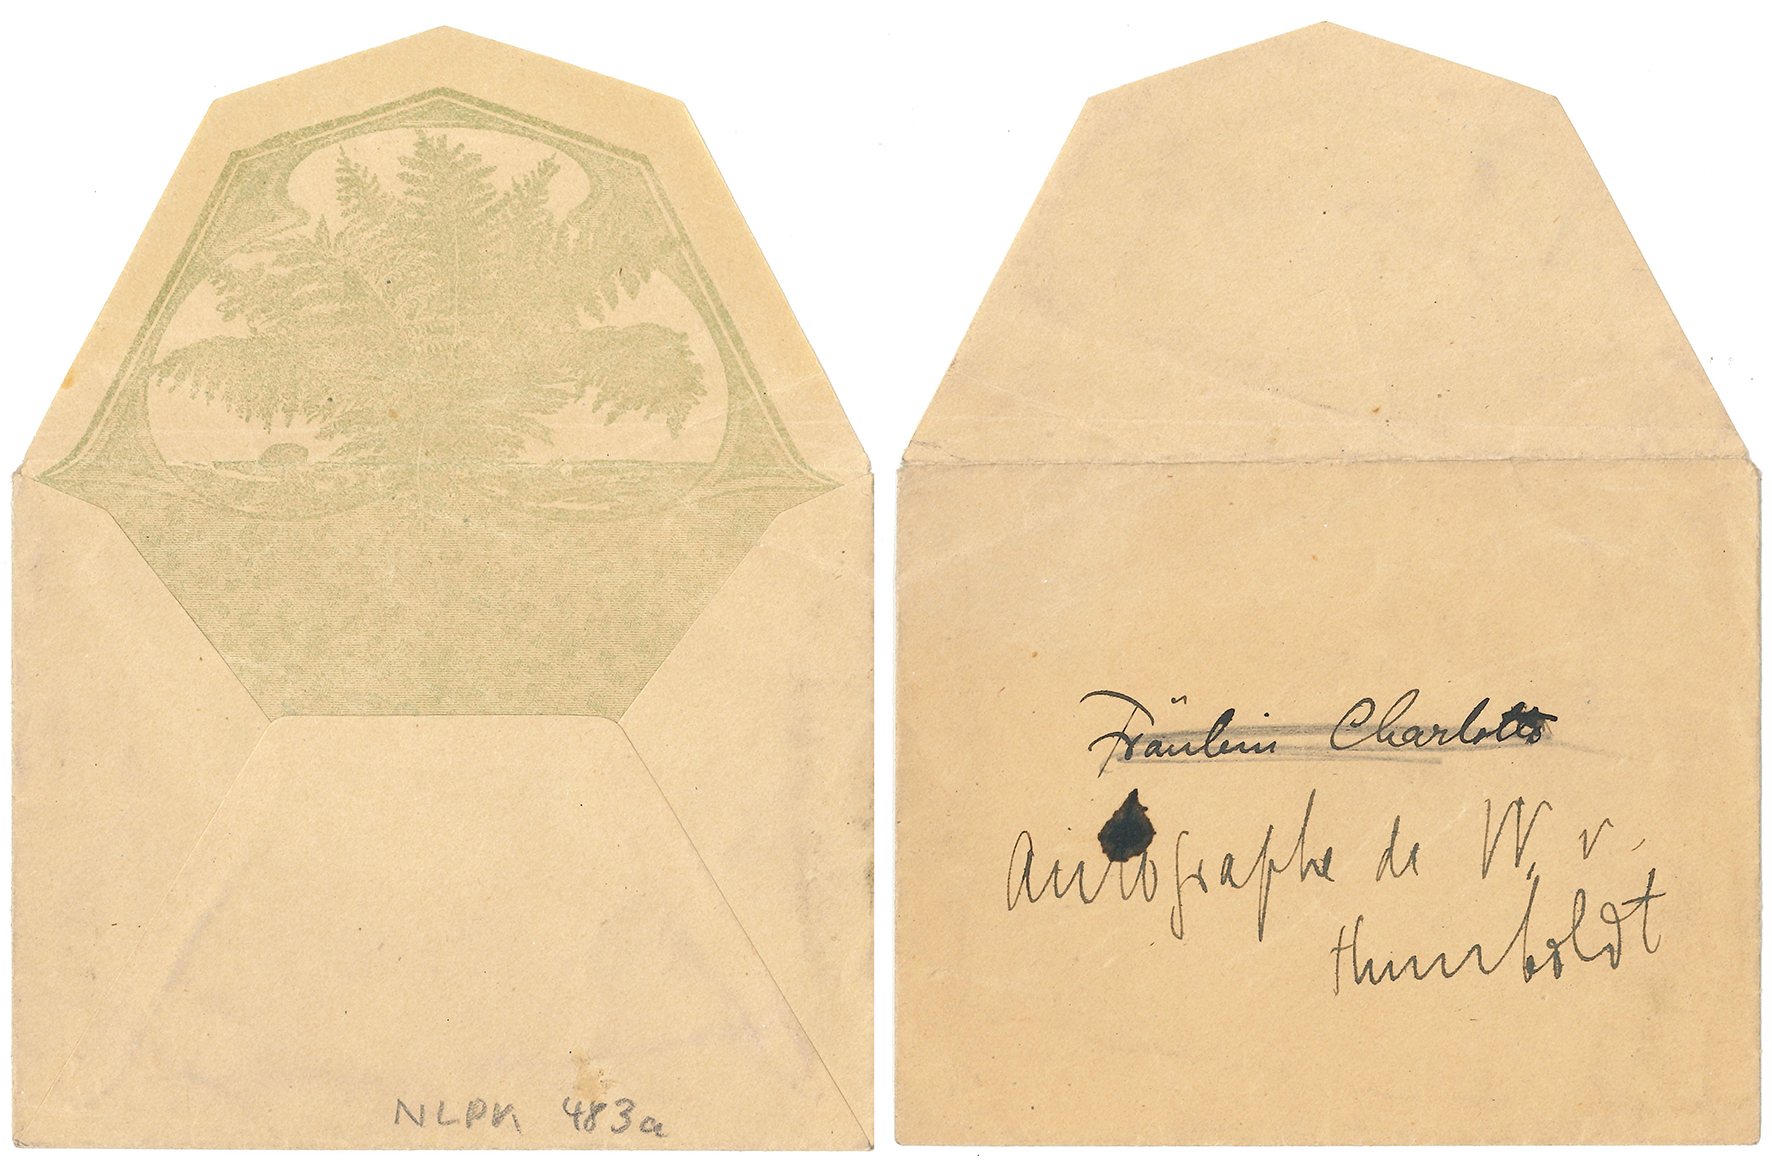 NLPK 483a
Fräulein Charlotte
Autographe de W. v.
Humboldt